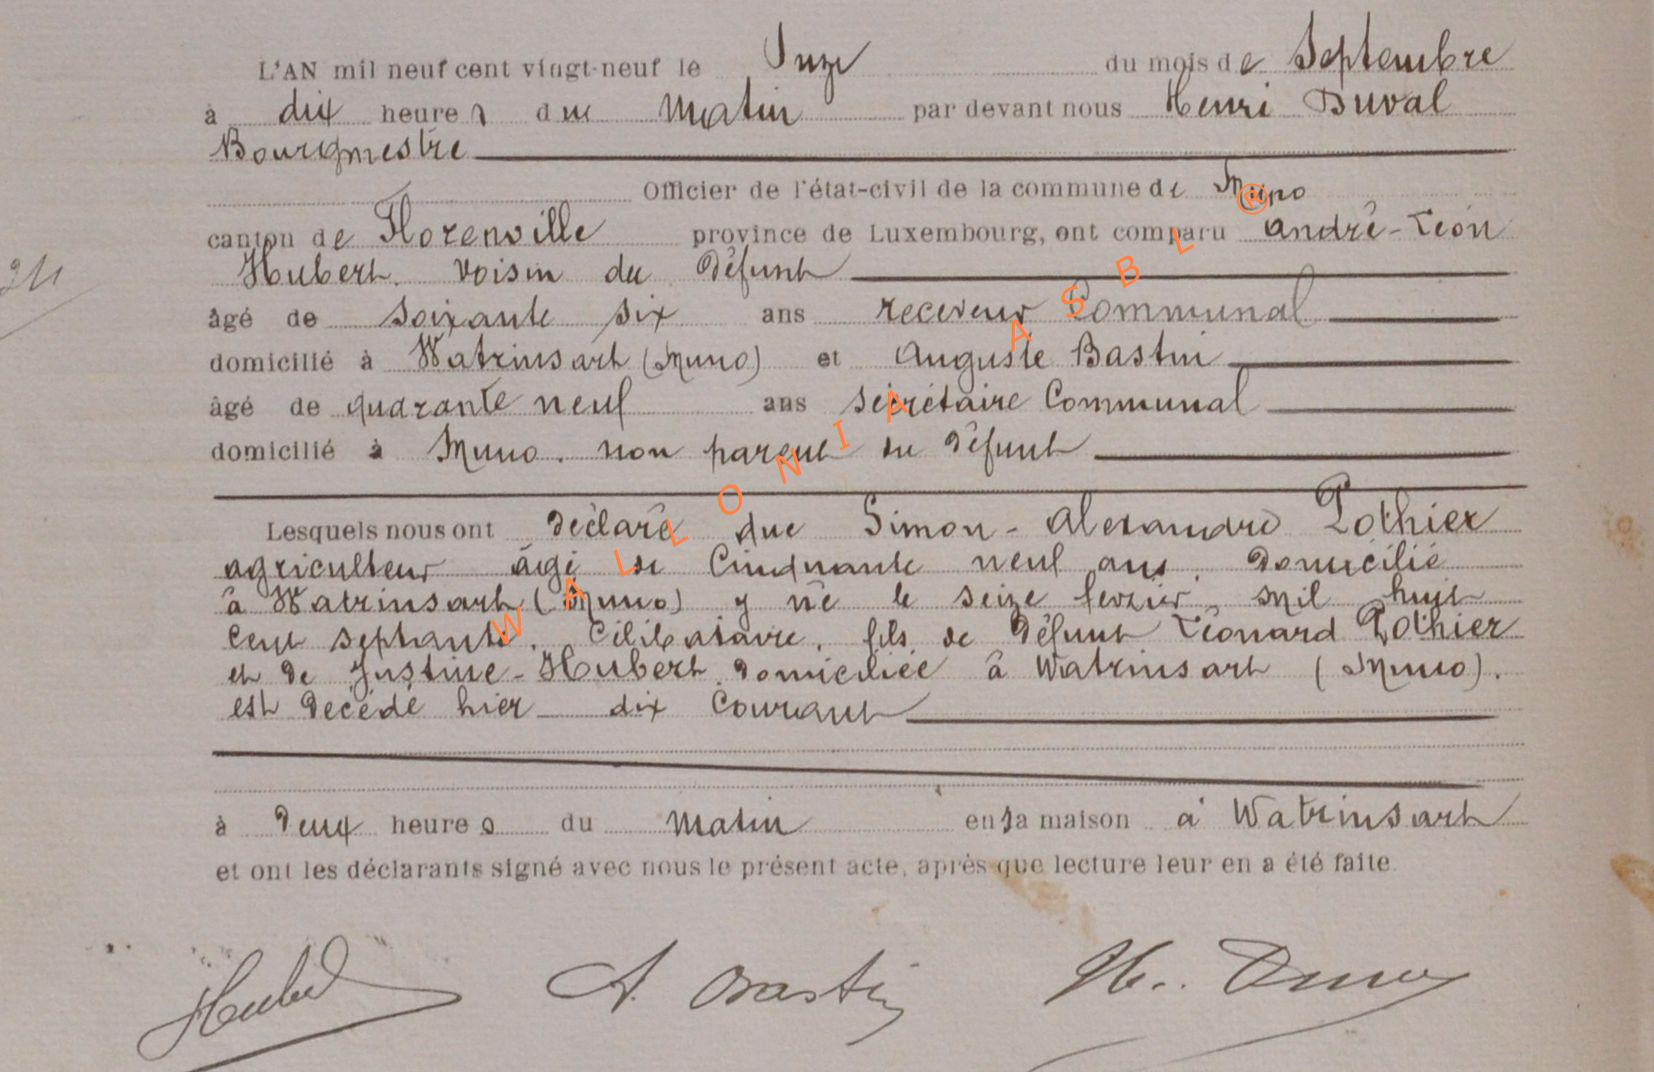 L'AN mil neuf cent vingt-neuf le Onze du mois de Septembre
à dix heures du Matin par devant nous Henri Duval
Bourgmestre
Officier de l'état-civil de la commune de Muno
canton de Florenville province de Luxembourg, ont comparu André-Léon
Hubert. voisin du défunt
âgé de soixante six ans receveur Communal
domicilié à Watrinsart (Muno) et Auguste Bastin
âgé de quarante neuf ans secrétaire Communal
domicilié à Muno. non parent du défunt
Lesquels nous ont déclaré que Simon-Alexandre Pothier
agriculteur âgé de Cinquante neuf ans. domicilié
à Watrinsart (Muno) y né le seize fevrier mil huit
cent septante. Célibataire. fils de défunt Léonard Pothier
et de Justine-Hubert. domiciliée à Watrinsart (Muno).
est décédé hier dix Courant
à deux heures du Matin en sa maison à Watrinsart
et ont les déclarants signé avec nous le présent acte, après que lecture leur en a été faite.
Hubert A. Bastin H. Duval
WALLONIA ASBL ®